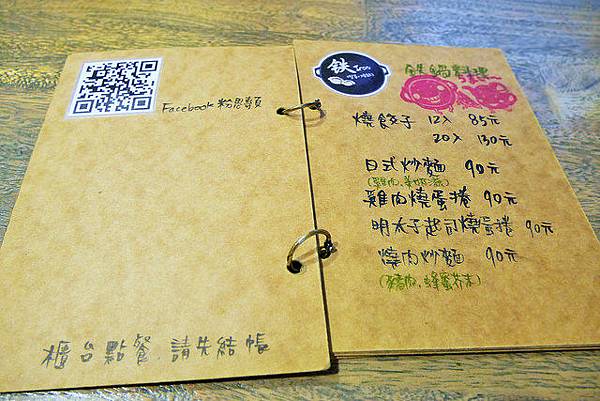 Facebook 粉思頁
櫃台點餐.請先結帳
鉄 Iron
鉄鍋料理
燒餃子 12入 85元
20入 130元
日式炒麵 90元
雞肉燒蛋捲 90元
明太子起司燒蛋捲 90元
燒肉炒麵 90元
(豬肉.蜂蜜芥末)